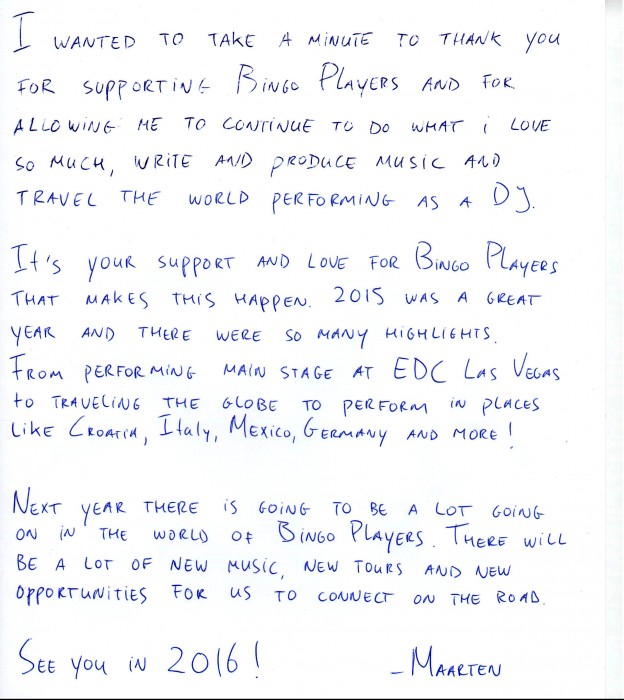 I WANTED TO TAKE A MINUTE TO THANK you
FOR SUPPORTING BINGO PLAYERS AND FOR
ALLOWING ME TO CONTINUE TO DO WHAT i LOVE
SO MUCH, WRITE AND PRODUCE MUSIC AND
TRAVEL THE WORLD PERFORMING AS A DJ.
It's your SUPPORT AND LOVE FOR BINGO PLAYERS
THAT MAKES THIS HAPPEN. 2015 WAS A GREAT
YEAR AND THERE WERE SO MANY HIGHLIGHTS.
FROM PERFORMING MAIN STAGE AT EDC LAS VEGAS
to TRAVELING THE GLOBE TO PERFORM IN PLACES
LIKE CROATIA, Italy, MEXICO, GERMANY AND MORE!
NEXT YEAR THERE IS GOING TO BE A LOT GOING
ON IN THE WORLD OF BINGO PLAYERS. THERE WILL
BE A LOT OF NEW MUSIC, NEW TOURS AND NEW
OPPORTUNITIES FOR US TO CONNECT ON THE ROAD.
SEE you IN 2016! -MAARTEN